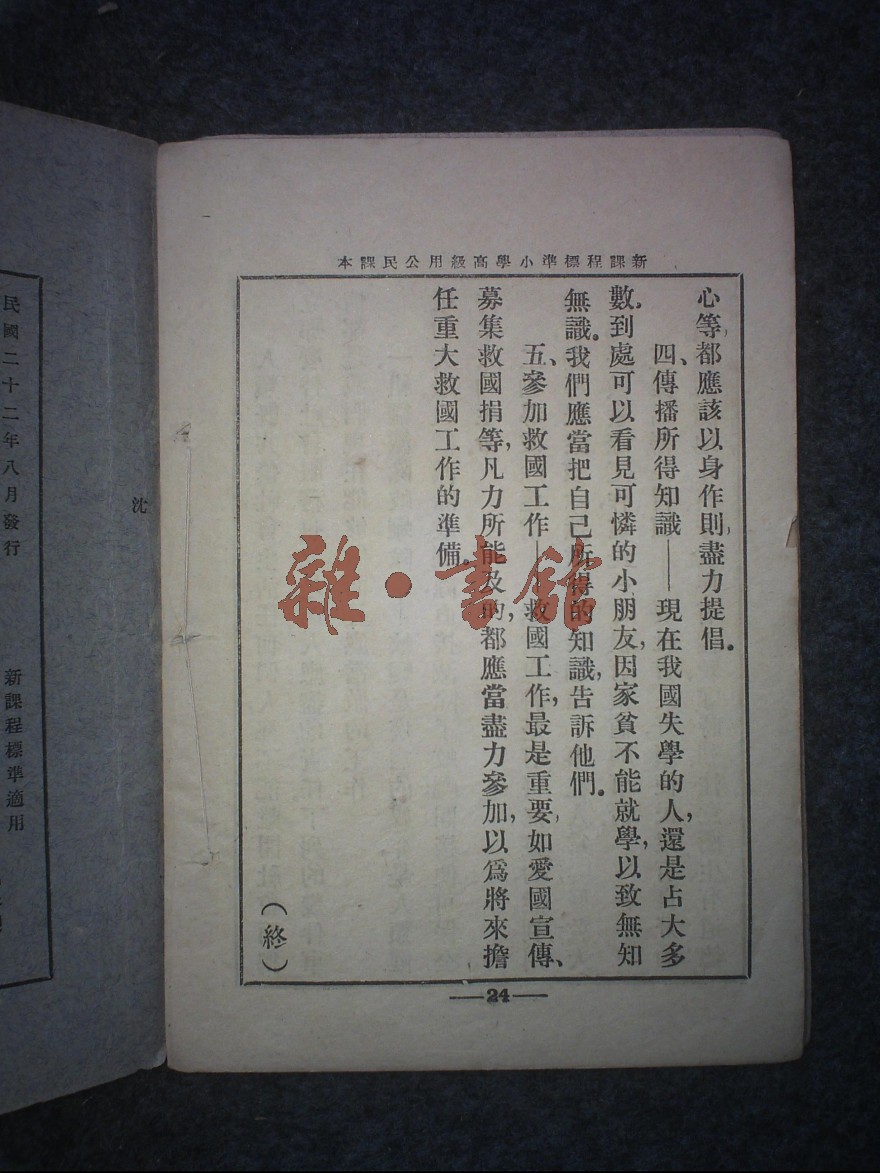 新課程標準小學高級用公民課本
心等,都應該以身作則,盡力提倡。
四、傳播所得知識——現在我國失學的人,還是占大多
數.到處可以看見可憐的小朋友,因家貧不能就學,以致無知
無識。我們應當把自己所得的知識,告訴他們。
五、參加救國工作——救國工作,最是重要,如愛國宣傳、
募集救國捐等,凡力所能及的,都應當盡力參加,以爲將來擔
任重大救國工作的準備。
(終)
24
沈
民國二十二年八月發行
新課程標準適用
雜·書館